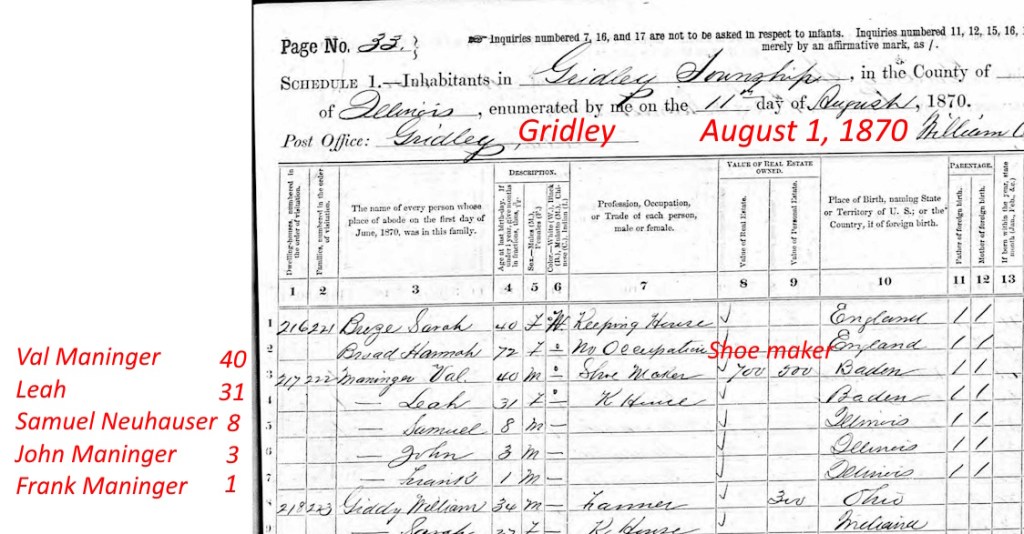 Page No. 33.}
☞ Inquiries numbered 7, 16, and 17 are not to be asked in respect to infants. Inquiries numbered 11, 12, 15, 16,
merely by an affirmative mark, as /.
SCHEDULE 1.—Inhabitants in Gridley Township, in the County of
of Illinois, enumerated by me on the 11th day of August, 1870.
Post Office: Gridley, Gridley August 1, 1870 William
DESCRIPTION. VALUE OF REAL ESTATE OWNED. PARENTAGE.
Dwelling-houses, numbered in the order of visitation.
Families, numbered in the order of visitation.
The name of every person whose place of abode on the first day of June, 1870, was in this family.
Age at last birth-day. If under 1 year, give months in fractions, thus,
Sex.—Males (M.), Females (F.)
Color.—White (W.), Black (B.), Mulatto (M.), Chinese (C.), Indian (I.)
Profession, Occupation, or Trade of each person, male or female.
Value of Real Estate.
Value of Personal Estate.
Place of Birth, naming State or Territory of U. S.; or the Country, if of foreign birth.
Father of foreign birth.
Mother of foreign birth.
If born within the year, state month (Jan., Feb., &c.)
1 2 3 4 5 6 7 8 9 10 11 12 13
1 216 221 Sarah 40 F W Keeping House England / /
2 Broad Hannah 72 F No Occupation England / /
Shoe maker
3 217 222 Maninger Val. 40 M Shoe Maker 700 500 Baden / /
4 — Leah 31 F K House Baden / /
5 — Samuel 8 M — Illinois / /
6 — John 3 M — Illinois / /
7 — Frank 1 M — Illinois / /
8 218 223 Giddy William 34 M — Farmer 300 Ohio
9 Sarah 27 F K House Indiana
Val Maninger 40
Leah 31
Samuel Neuhauser 8
John Maninger 3
Frank Maninger 1